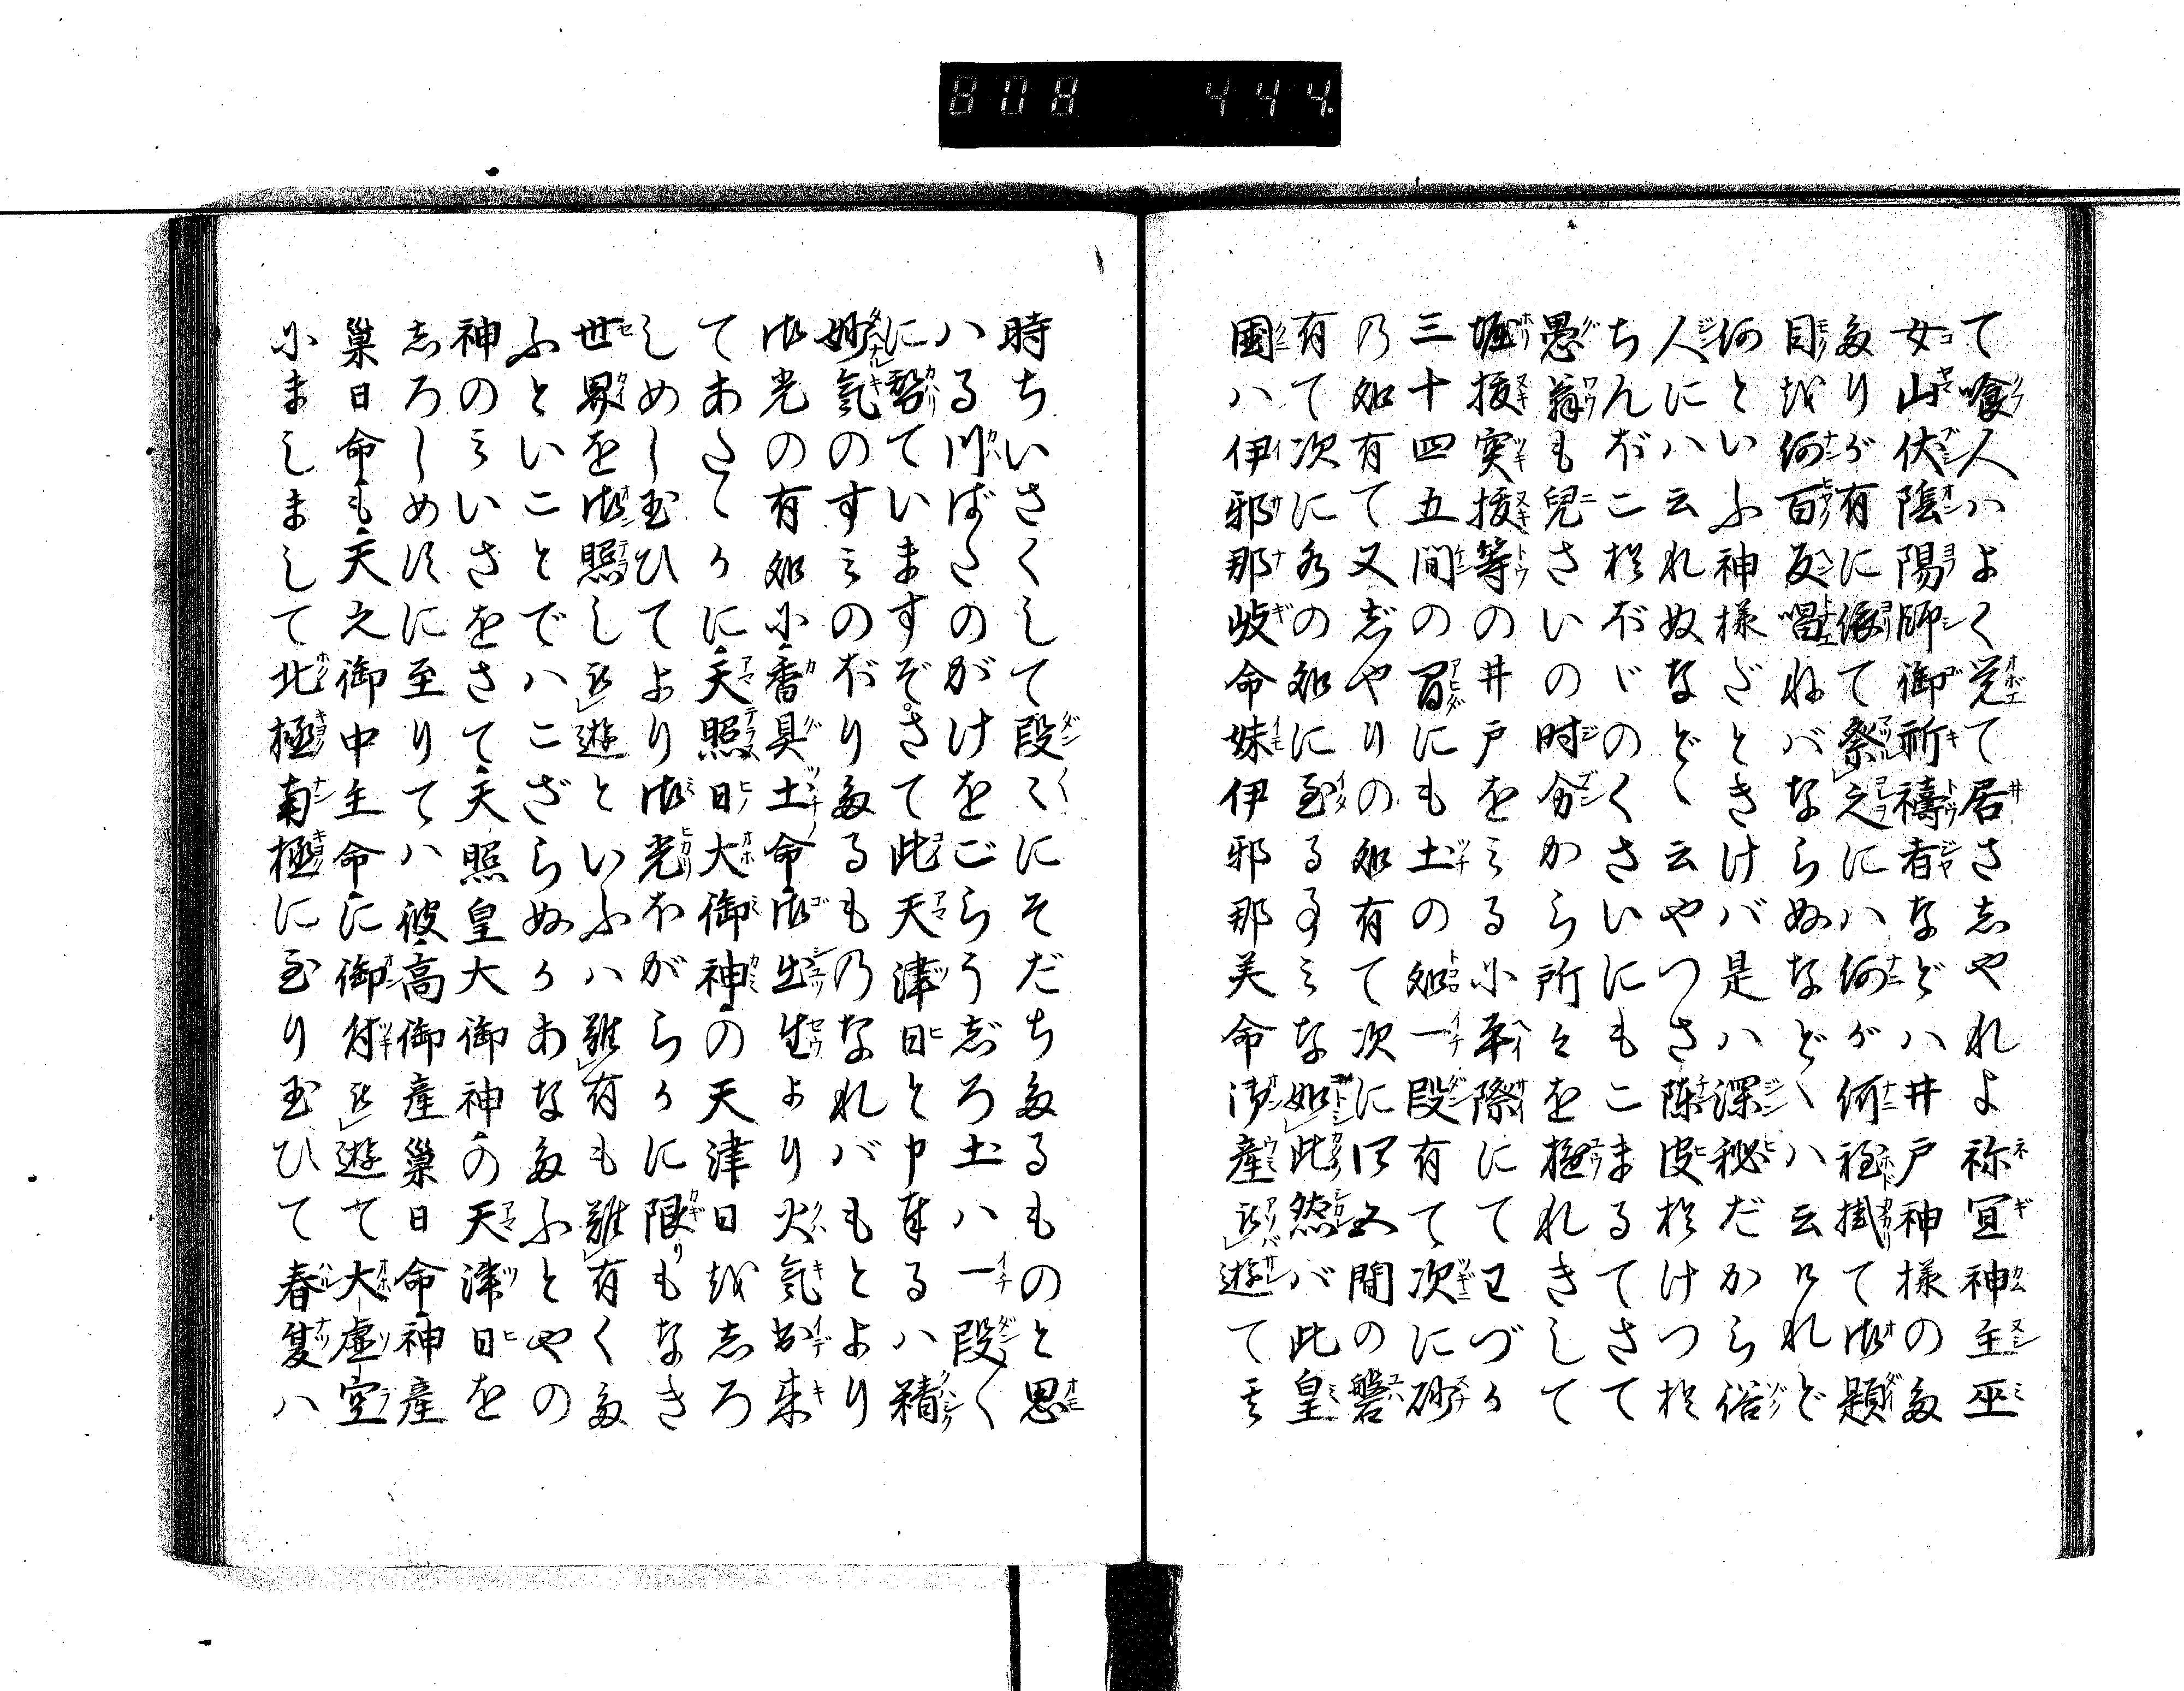 808 444.
て喰人ハよく覚て居さしやれよ祢冝神主巫
女山伏陰陽師御祈禱者なぞハ井戸神様のた
たりが有に依て祭之にハ何が何程掛て御題
目を何百反唱ねバならぬなどゝハ云けれど
何といふ神様ざときけバ是ハ深秘だから俗
人にハ云れぬなどゝ云やつさ陳皮於けつ於
ちんぼこ於ぼゞのくさいにもこまるてさて
愚翁も児さいの时分から所々を遊れきして
堀抜突抜等の井戸をみる小平際にてわづか
三十四五間の間にも土の処一段有て次に砂
乃処有て又志やりの処有て次に四五間の磐
有て次に水の処に至る事みな如此然バ此皇
国ハ伊邪那岐命妹伊邪那美命御産遊て其
時ちいさくして段々にそだちたるものと思
ハる川ばたのがけをごらうじろ土ハ一段〱
に替ていますぞさて此天津日と申奉るハ精
妙気のすみのぼりたるも乃なれバもとより
御光の有処小香具土命御出生より火気出来
てあたゝかに天照日大御神の天津日を志ろ
しめし玉ひてより御光ながらかに限りもなき
世界を御照し遊といふハ難有も難有くた
ふといことでハござらぬかあなたふとやの
神のみいさをさて天照皇大御神の天津日を
志ろしめすに至りてハ彼高御産巣日命神産
巣日命も天之御中主命に御付遊て大虚空
小ましまして北極南極に至り玉ひて春夏ハ